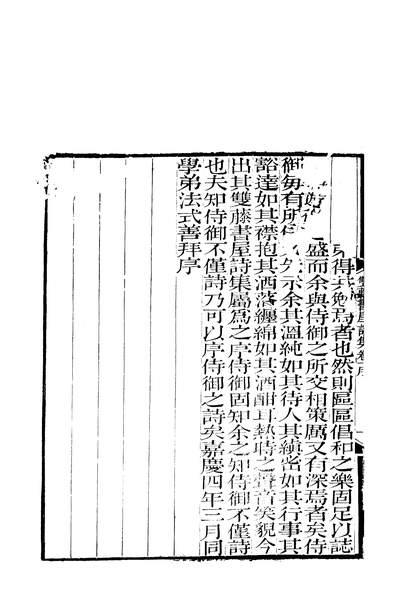 得其勉焉者也然則區區倡和之樂固足以誌
盛而余與侍御之所交相策厲又有深焉者矣侍
御每有所作示余其溫純如其待人其縝密如其行事其
豁達如其襟抱其洒落纏綿如其酒酣耳熱時之聲音笑貌今
出其雙藤書屋詩集屬爲之序侍御固知余之知侍御不僅詩
也夫知侍御不僅詩乃可以序侍御之詩矣嘉慶四年三月同
學弟法式善拜序